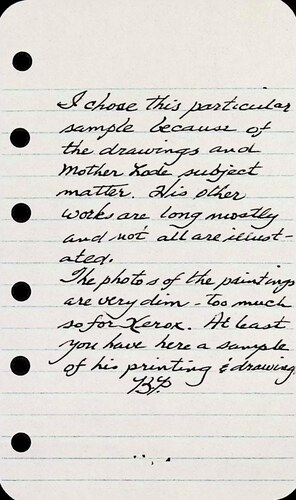 I chose this particular
sample because of
the drawings and
Mother Lode subject
matter. His other
works are long mostly
and not all are illust-
ated.
The photos of the paintings
are very dim - too much
so for Xerox. At least
you have here a sample
of his printing & drawing